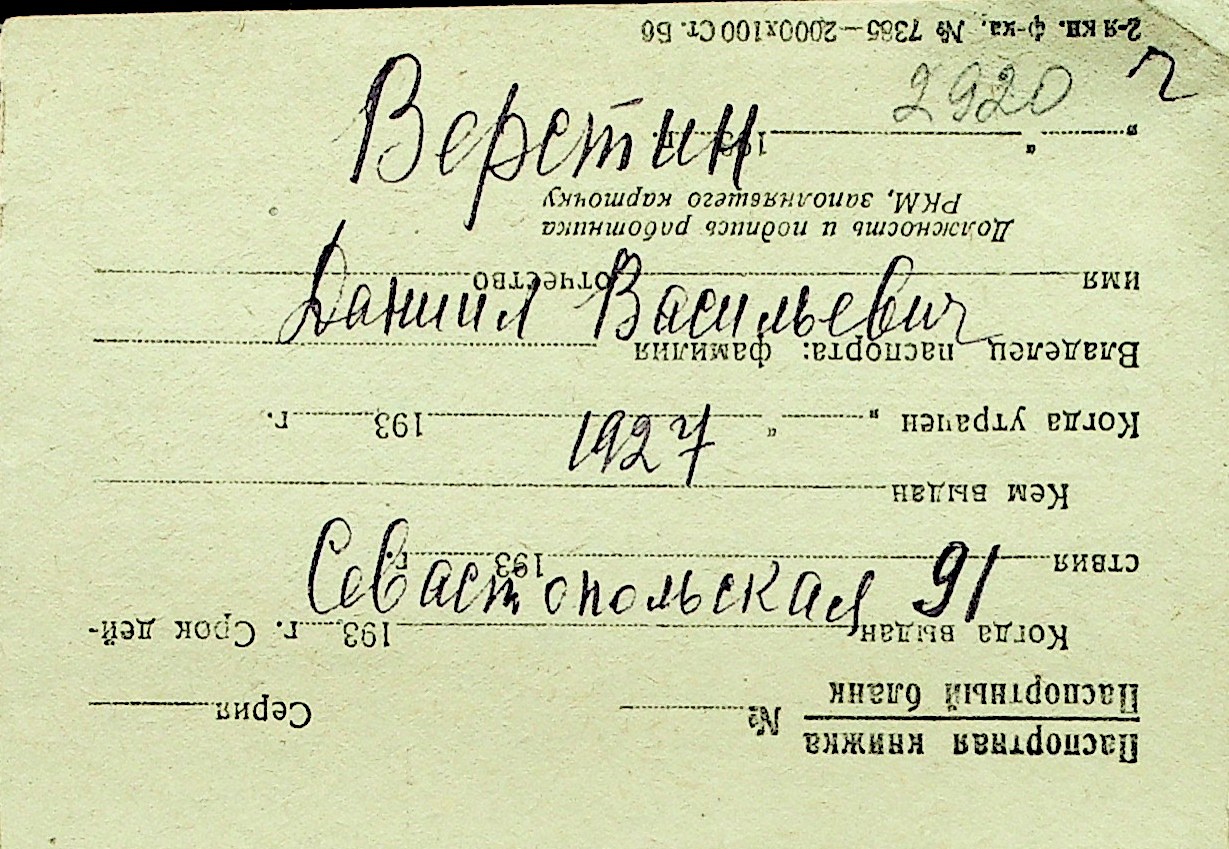 2920
Верстин
Даниил Васильевич
1927
Севастопольская 91
Паспортная книжка
Паспортный бланк
№ Серия
Когда выдан 193 г. Срок дей-
ствия 193 г.
Кем выдан
Когда утрачен „ “ 193 г.
Владелец паспорта: фамилия
имя отчество
Должность и подпись работника
РКМ, заполнявшего карточку
„ “ 193 г.
2-я кн. ф-ка. № 7365—2000х100 Ст.